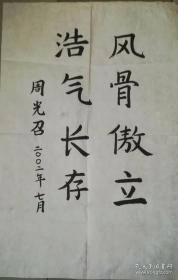 风骨傲立
浩气长存
周光召
二〇〇二年七月